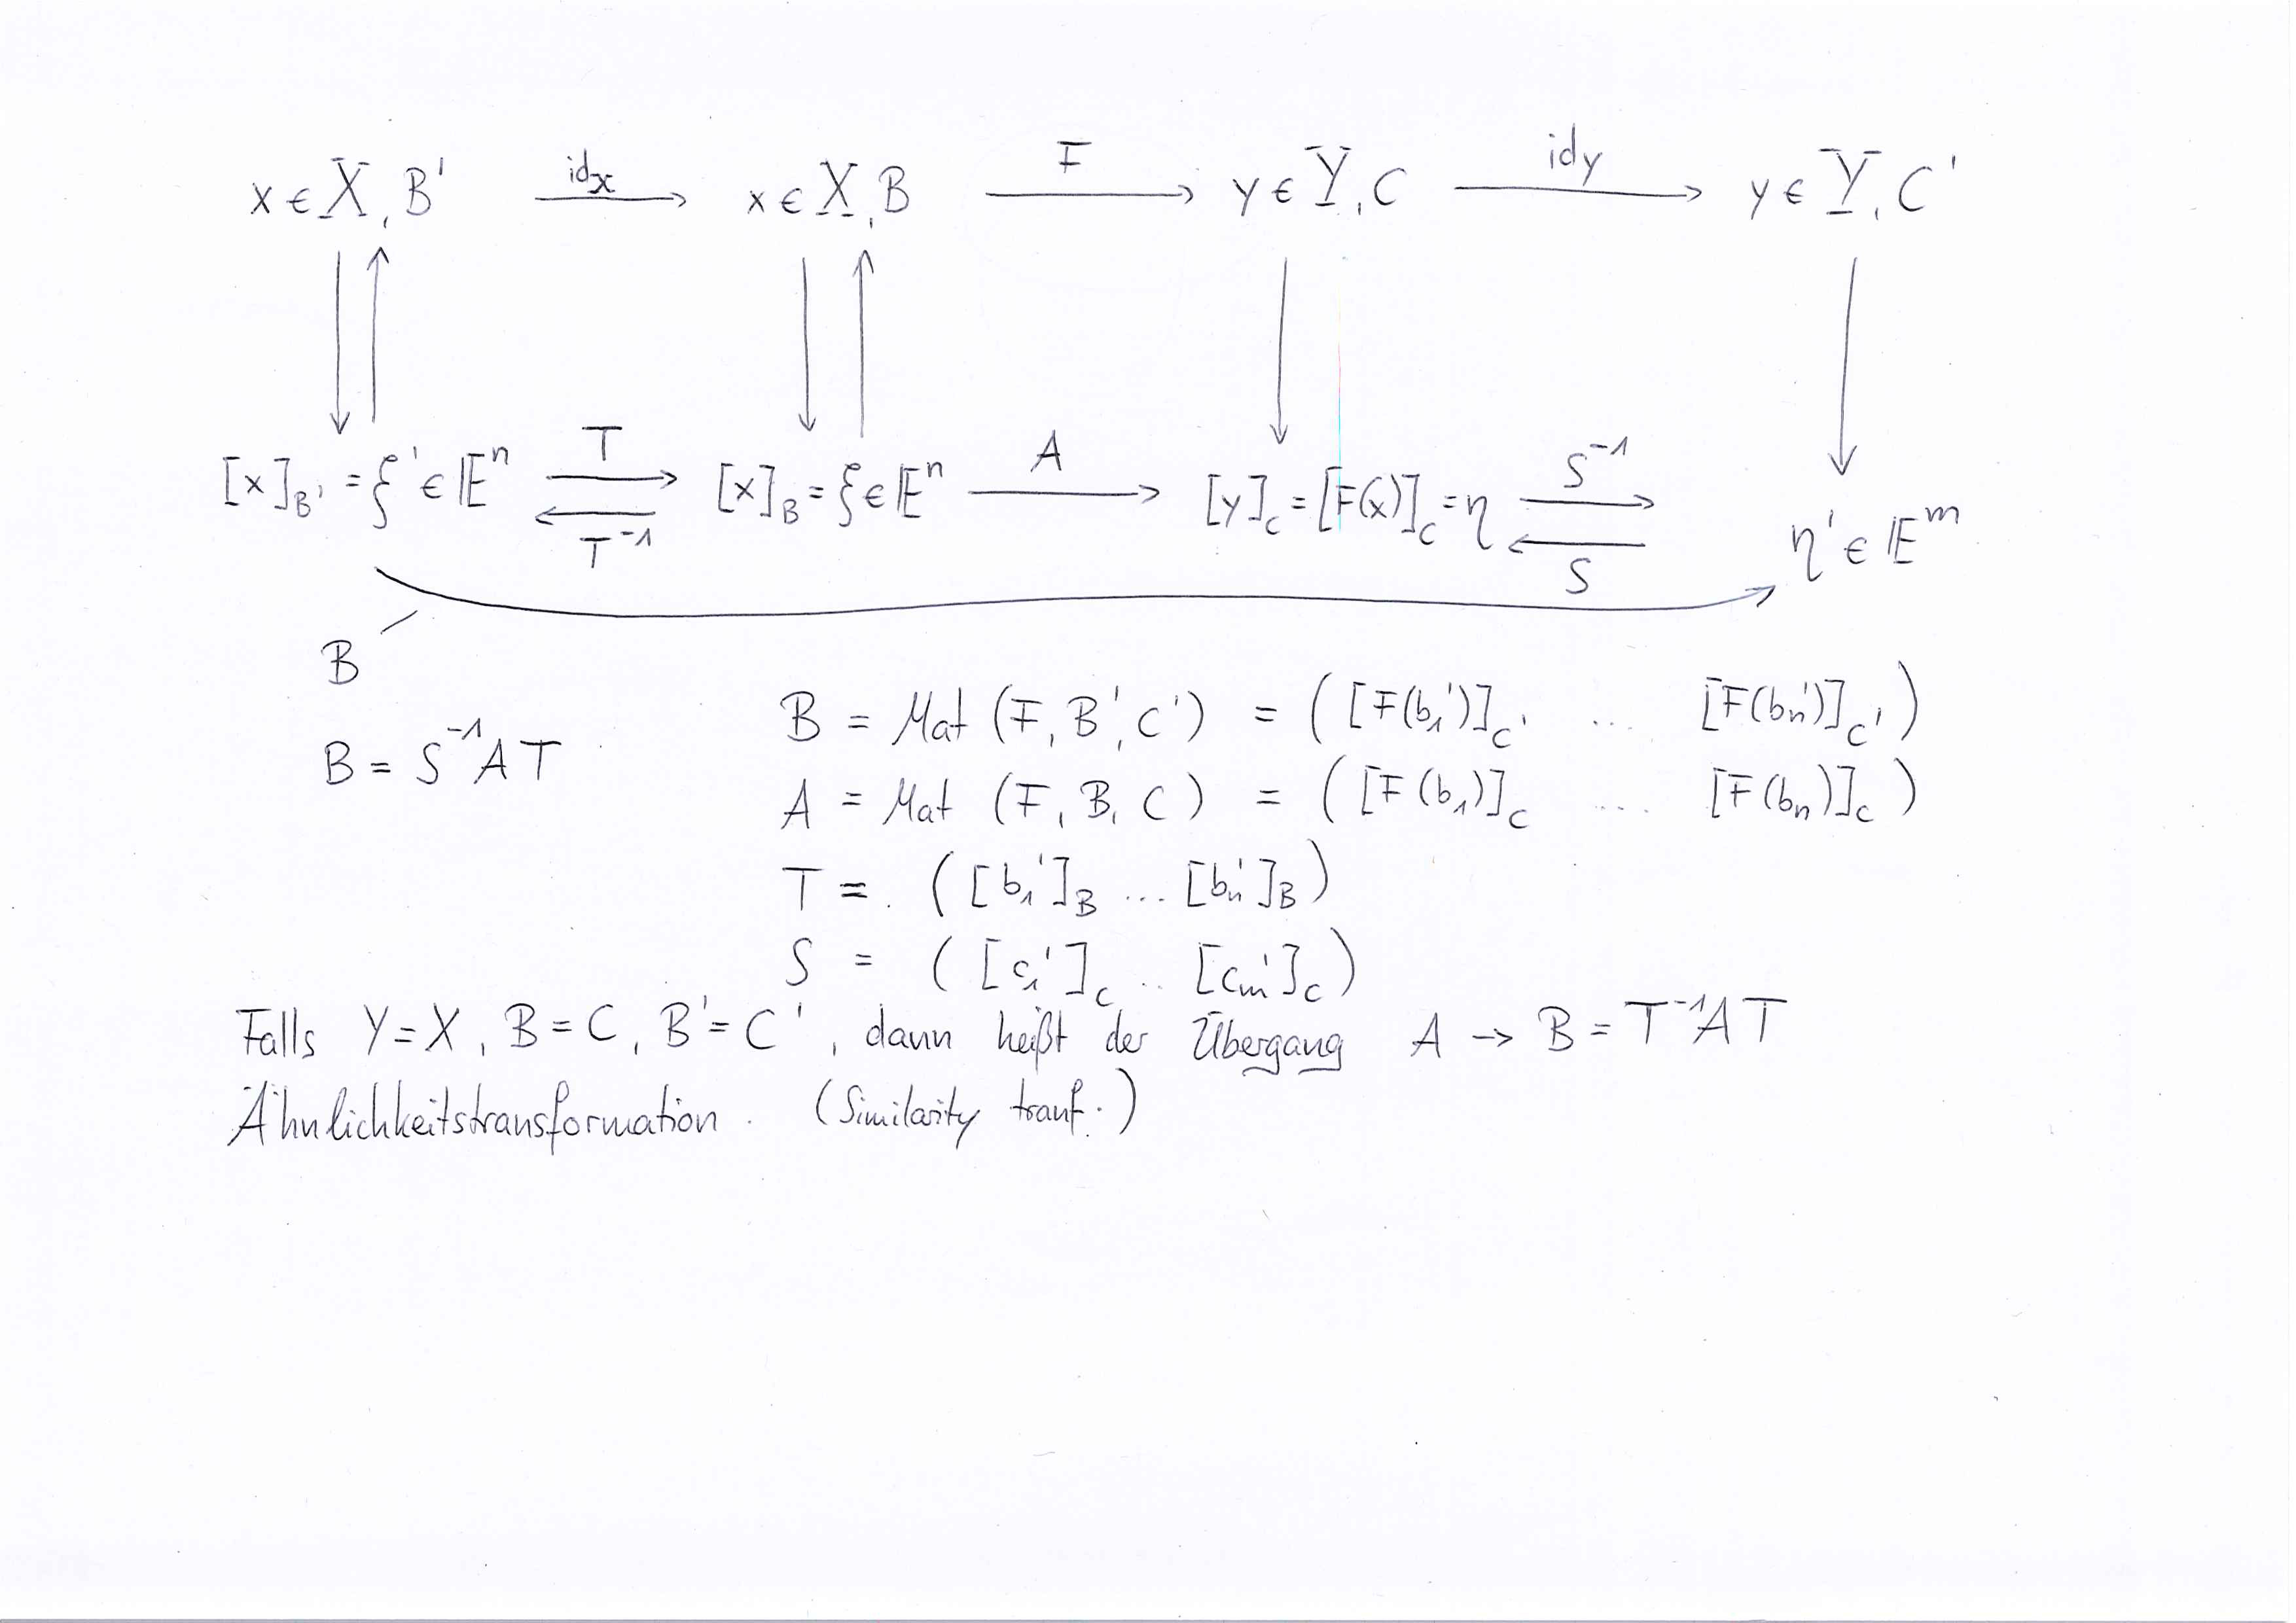 x ∈ X, B' id_X x ∈ X, B F y ∈ Y, C id_Y y ∈ Y, C'
[x]_B' = ξ' ∈ 𝔼^n T T^-1 [x]_B = ξ ∈ 𝔼^n A [y]_C = [F(x)]_C = η S^-1 S η' ∈ 𝔼^m
B
B = S^-1 A T
B = Mat (F, B', C') = ([F(b_1')]_C' ... [F(b_n')]_C')
A = Mat (F, B, C) = ([F(b_1)]_C ... [F(b_n)]_C)
T = ([b_1']_B ... [b_n']_B)
S = ([c_1']_C .. [c_m']_C)
Falls Y = X, B = C, B' = C', dann heißt der Übergang A → B = T^-1 A T
Ähnlichkeitstransformation. (Similarity tranf.)